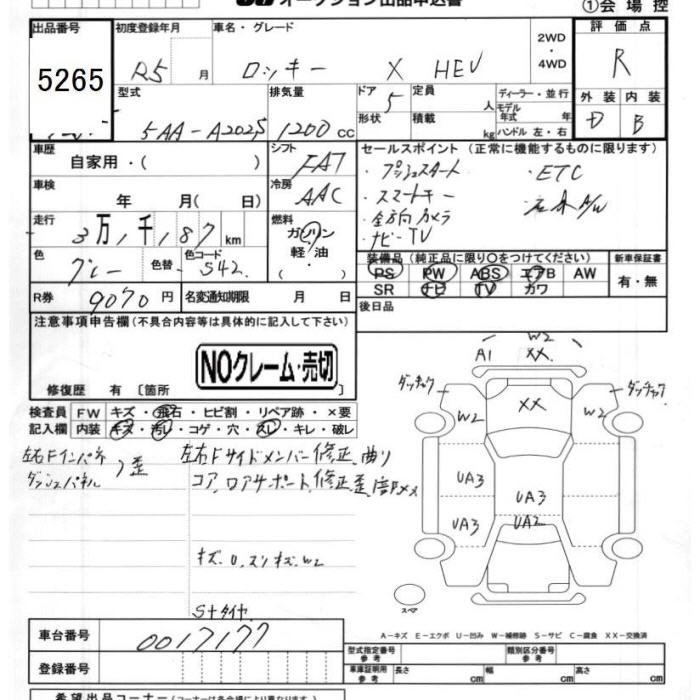 オークション出品申込書
①会場控
出品番号 5265
初度登録年月 R5 月
車名・グレード ロッキー X HEV
2WD・4WD
評価点 R
外装 D 内装 B
型式 5AA-A202S
排気量 1200 cc
ドア 5 形状
定員 人
積載 kg
ディーラー・並行
モデル年式 年
ハンドル 左・右
車歴 自家用・( )
シフト FAT
車検 年 月( 日)
冷房 AAC
走行 3万1千187 km
燃料 ガソリン 軽油 ( ・ )
色 グレー 色替 色コード S42
R券 9070円
名変通知期限 月 日
セールスポイント (正常に機能するものに限ります)
・プッシュスタート ・ETC
・スマートキー
・全方向カメラ
・ナビ-TV
装備品(純正品に限り〇をつけてください)
PS PW ABS エアB AW
SR ナビ TV カワ
新車保証書 有・無
後日品
注意事項申告欄(不具合内容等は具体的に記入して下さい)
NOクレーム・売切
修復歴 有 〔箇所 〕
検査員記入欄
FW キズ・飛石・ヒビ割・リペア跡・×要
内装 キズ・汚レ・コゲ・穴・スレ・キレ・破レ
左右Fインパネ ダッシュパネル 歪
左右Fサイドメンバー修正、曲り
コア、ロアサポート、修正歪
キズ.U.スリキズ.W2
S+タイヤ
W2
A1 XX
ダッチャク
ダッチャク
W2 XX W2
UA3
UA3
UA3 UA2
スペア
A-キズ E-エクボ U-凹み W-補修跡 S-サビ C-腐食 XX-交換済
車台番号 0017177
登録番号
型式指定番号 参考
類別区分番号 参考
車庫証明用 参考 長さ cm 幅 cm 高さ cm
希望出品コーナー(コーナーは各会場により異なります)